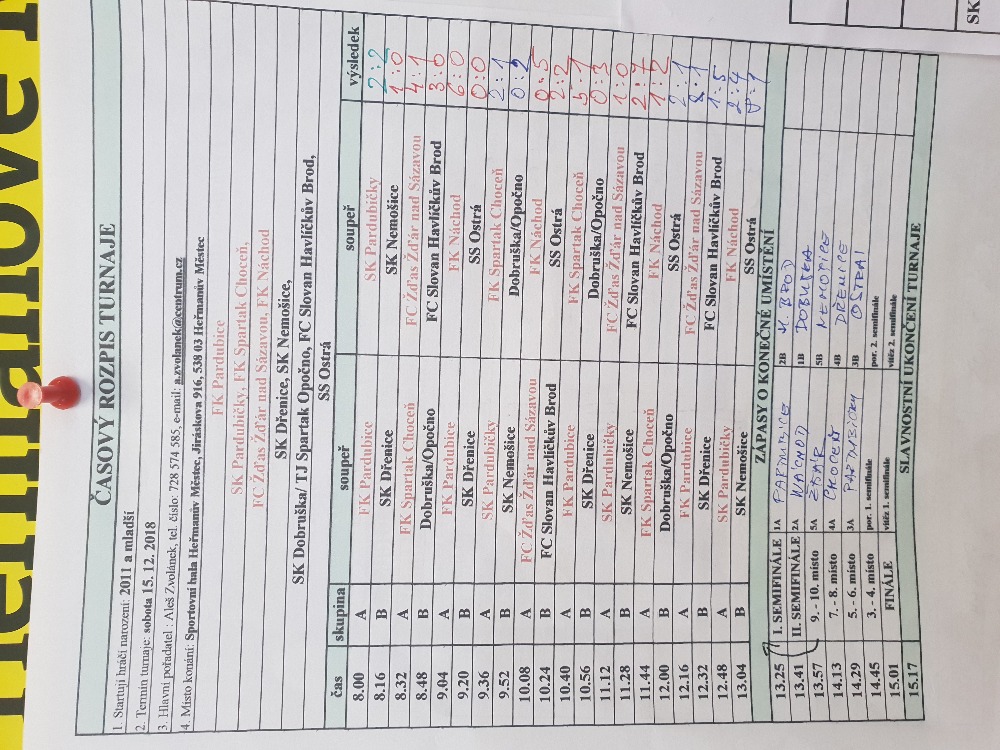 ČASOVÝ ROZPIS TURNAJE
1. Startují hráči narození: 2011 a mladší
2. Termín turnaje: sobota 15. 12. 2018
3. Hlavní pořadatel : Aleš Zvolánek, tel. číslo: 728 574 585, e-mail: a.zvolanek@centrum.cz
4. Místo konání: Sportovní hala Heřmanův Městec, Jiráskova 916, 538 03 Heřmanův Městec
FK Pardubice
SK Pardubičky, FK Spartak Choceň,
FC Žďas Žďár nad Sázavou, FK Náchod
SK Dřenice, SK Nemošice,
SK Dobruška/ TJ Spartak Opočno, FC Slovan Havlíčkův Brod,
SS Ostrá
čas skupina soupeř soupeř výsledek
8.00 A FK Pardubice SK Pardubičky 2:2
8.16 B SK Dřenice SK Nemošice 1:0
8.32 A FK Spartak Choceň FC Žďas Žďár nad Sázavou 4:1
8.48 B Dobruška/Opočno FC Slovan Havlíčkův Brod 3:0
9.04 A FK Pardubice FK Náchod 6:0
9.20 B SK Dřenice SS Ostrá 0:0
9.36 A SK Pardubičky FK Spartak Choceň 2:1
9.52 B SK Nemošice Dobruška/Opočno 0:2
10.08 A FC Žďas Žďár nad Sázavou FK Náchod 0:5
10.24 B FC Slovan Havlíčkův Brod SS Ostrá 2:2
10.40 A FK Pardubice FK Spartak Choceň 5:1
10.56 B SK Dřenice Dobruška/Opočno 0:3
11.12 A SK Pardubičky FC Žďas Žďár nad Sázavou 1:0
11.28 B SK Nemošice FC Slovan Havlíčkův Brod
11.44 A FK Spartak Choceň FK Náchod 1:2
12.00 B Dobruška/Opočno SS Ostrá 2:1
12.16 A FK Pardubice FC Žďas Žďár nad Sázavou 8:1
12.32 B SK Dřenice FC Slovan Havlíčkův Brod 1:5
12.48 A SK Pardubičky FK Náchod 2:4
13.04 B SK Nemošice SS Ostrá
ZÁPASY O KONEČNÉ UMÍSTĚNÍ
13.25 I. SEMIFINÁLE 1A PARDUBICE 2B H. BROD
13.41 II. SEMIFINÁLE 2A NÁCHOD 1B DOBRUŠKA
13.57 9. - 10. místo 5A ŽĎÁR 5B NEMOŠICE
14.13 7. - 8. místo 4A CHOCEŇ 4B DŘENICE
14.29 5. - 6. místo 3A PARDUBIČKY 3B OSTRÁ
14.45 3. - 4. místo por. 1. semifinále por. 2. semifinále
15.01 FINÁLE vítěz 1. semifinále vítěz 2. semifinále
15.17 SLAVNOSTNÍ UKONČENÍ TURNAJE
SK